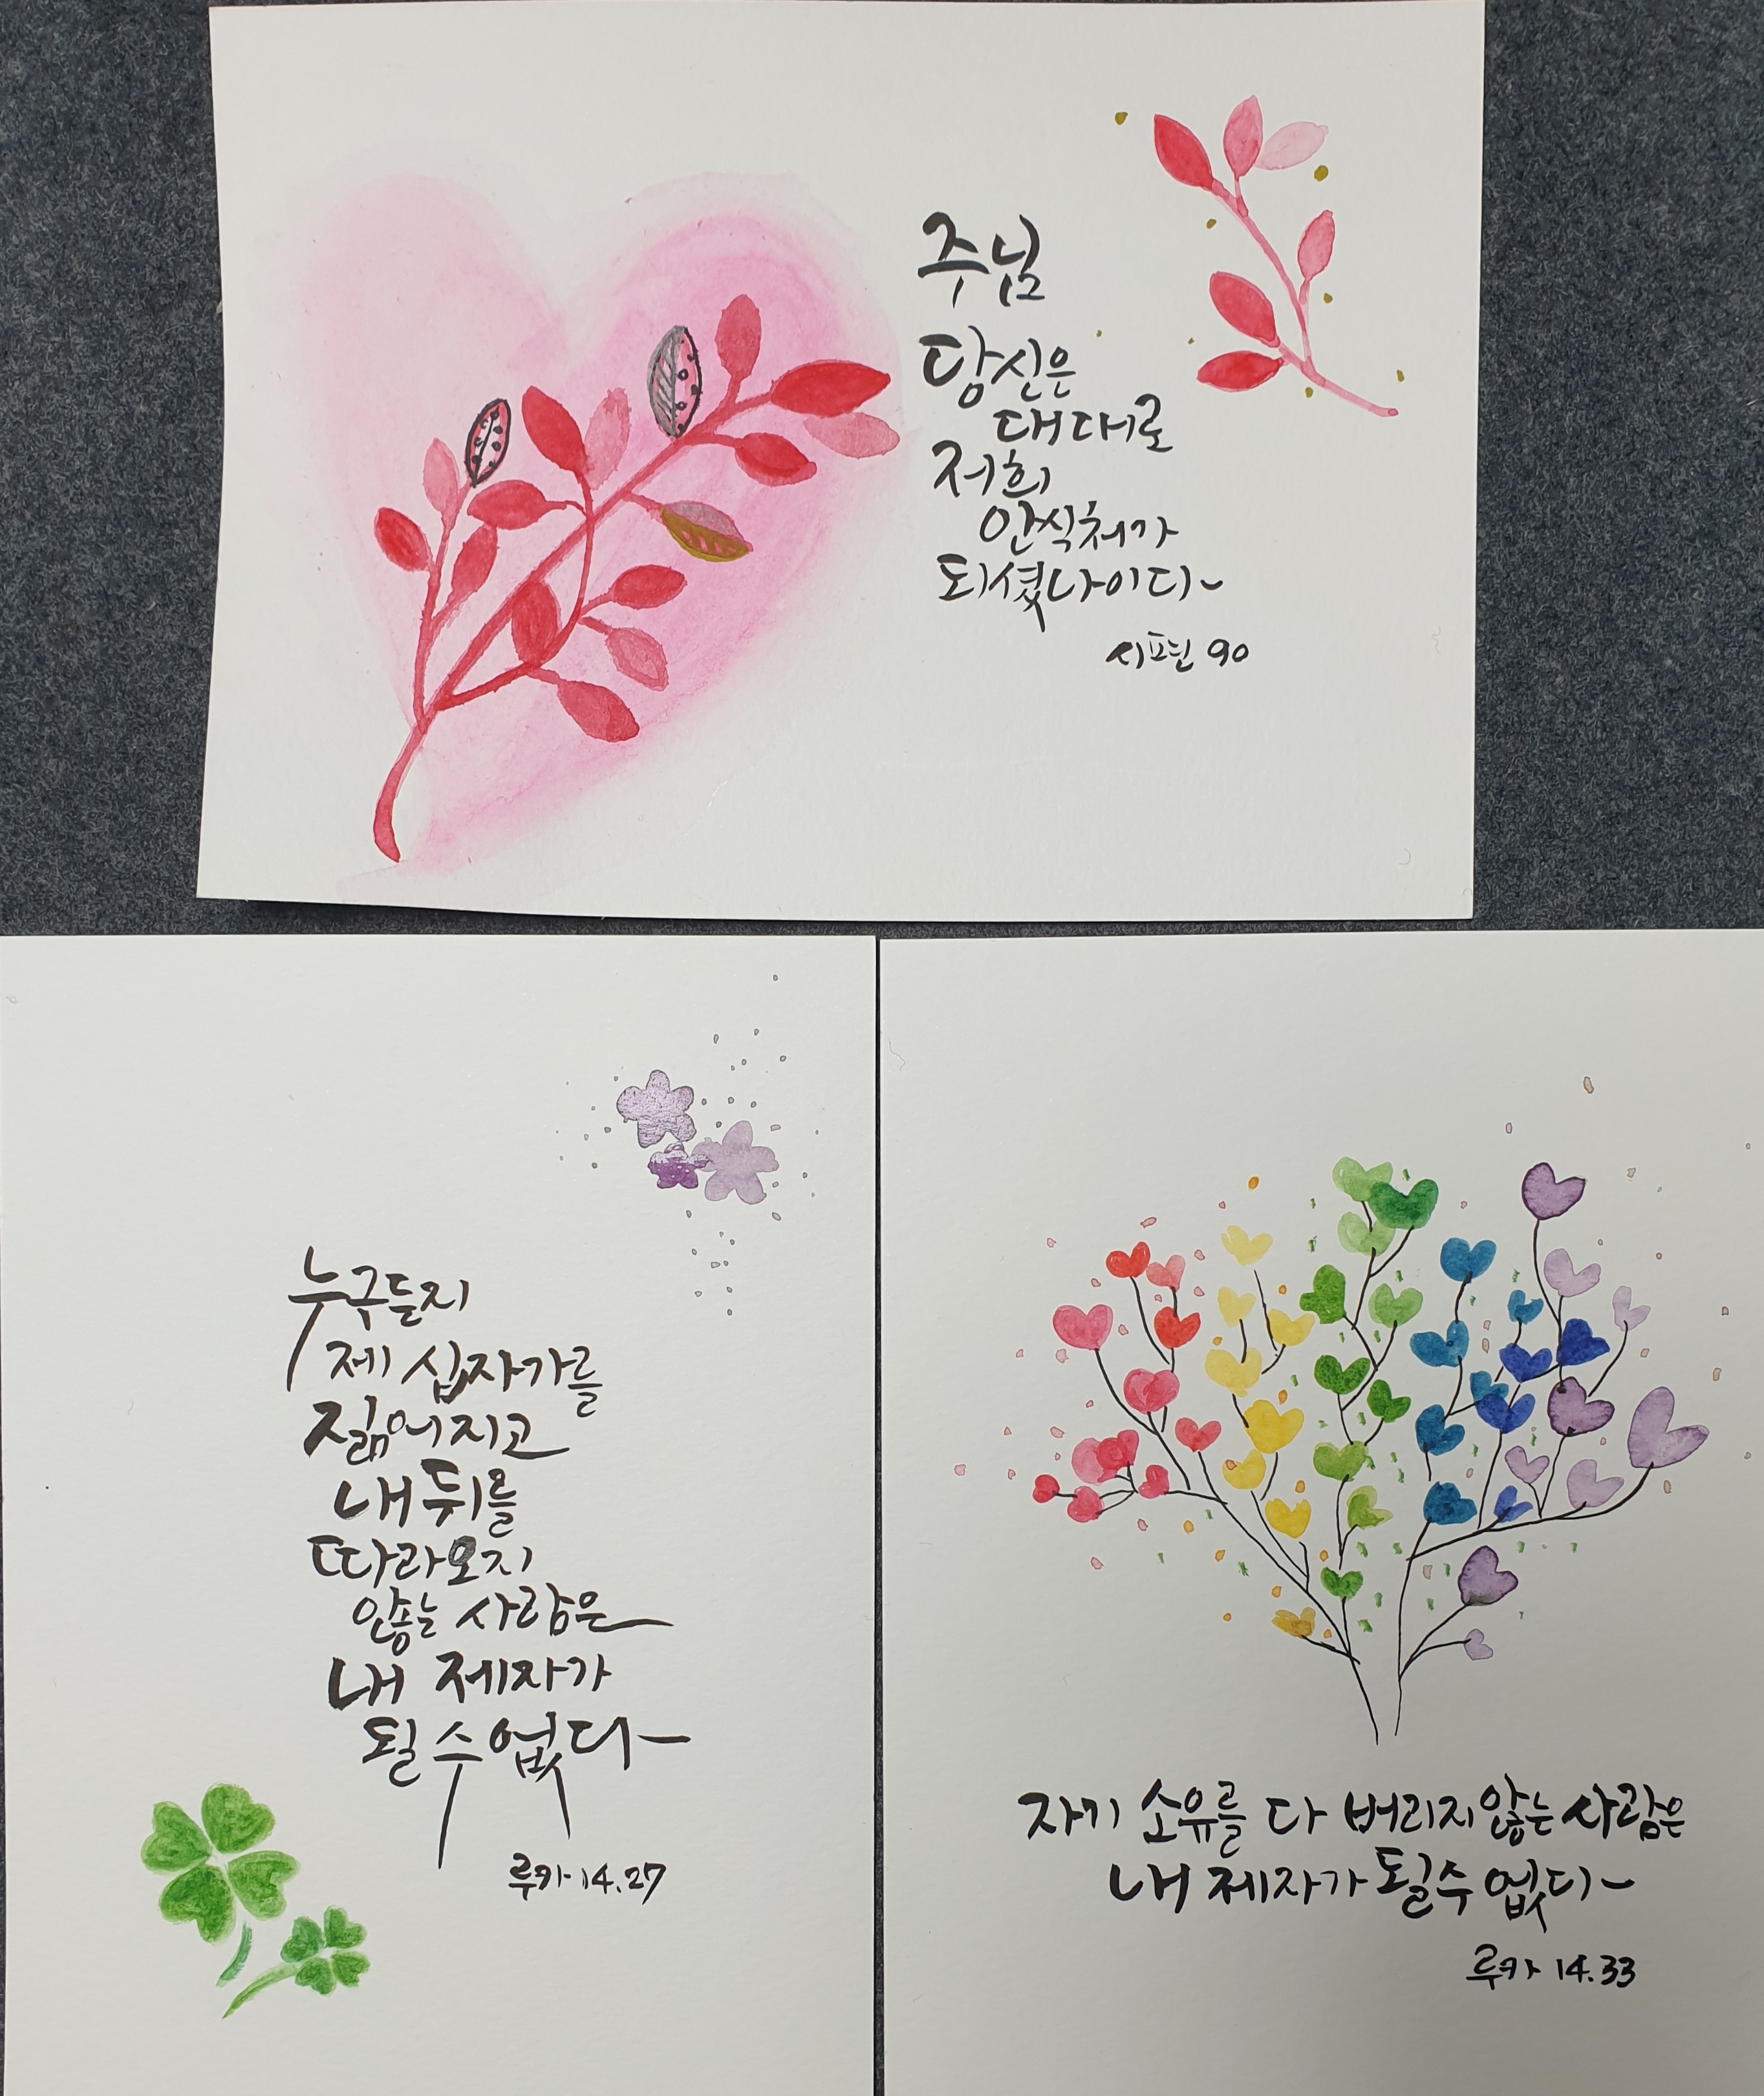 주님
당신은
대대로
저희
안식처가
되셨나이다~
시편 90
누구든지
제 십자가를
짊어지고
내 뒤를
따라오지
않는 사람은
내 제자가
될 수 없다~
루카 14.27
자기 소유를 다 버리지 않는 사람은
내 제자가 될 수 없다~
루카 14.33